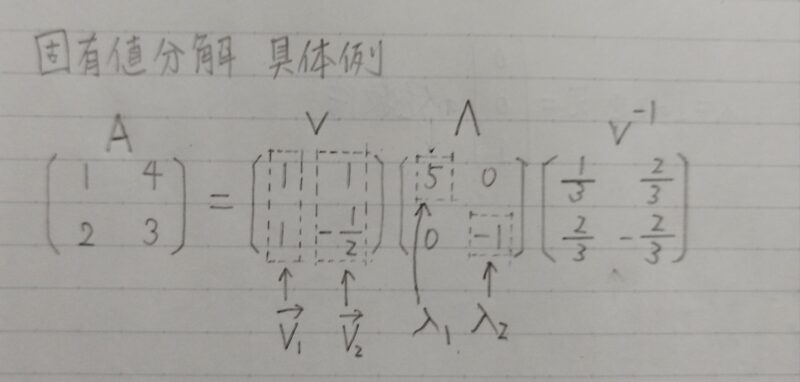 固有値分解 具体例
A V Λ V⁻¹
( 1 4 ; 2 3 ) = ( 1 1 ; 1 -1/2 ) ( 5 0 ; 0 -1 ) ( 1/3 2/3 ; 2/3 -2/3 )
↑ ↑ ↑ ↑
V⃗₁ V⃗₂ λ₁ λ₂